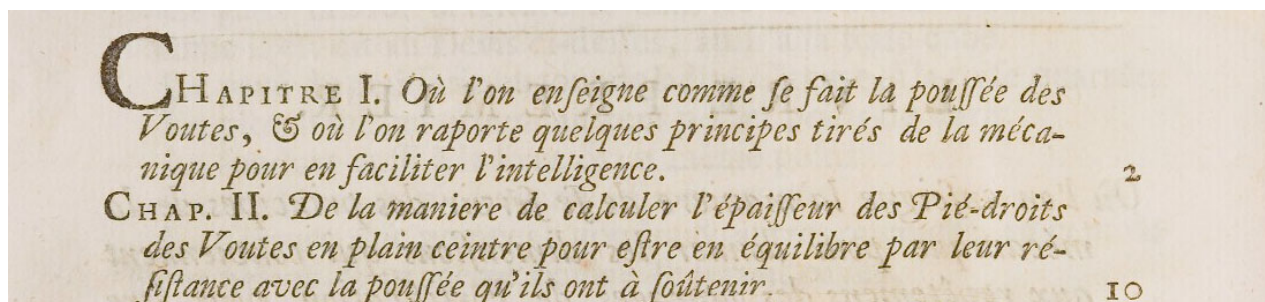 CHAPITRE I. Où l'on enſeigne comme ſe fait la pouſſée des
Voutes, & où l'on raporte quelques principes tirés de la méca-
nique pour en faciliter l'intelligence. 2
CHAP. II. De la maniere de calculer l'épaiſſeur des Pié-droits
des Voutes en plain ceintre pour eſtre en équilibre par leur ré-
ſiſtance avec la pouſſée qu'ils ont à ſoûtenir. 10